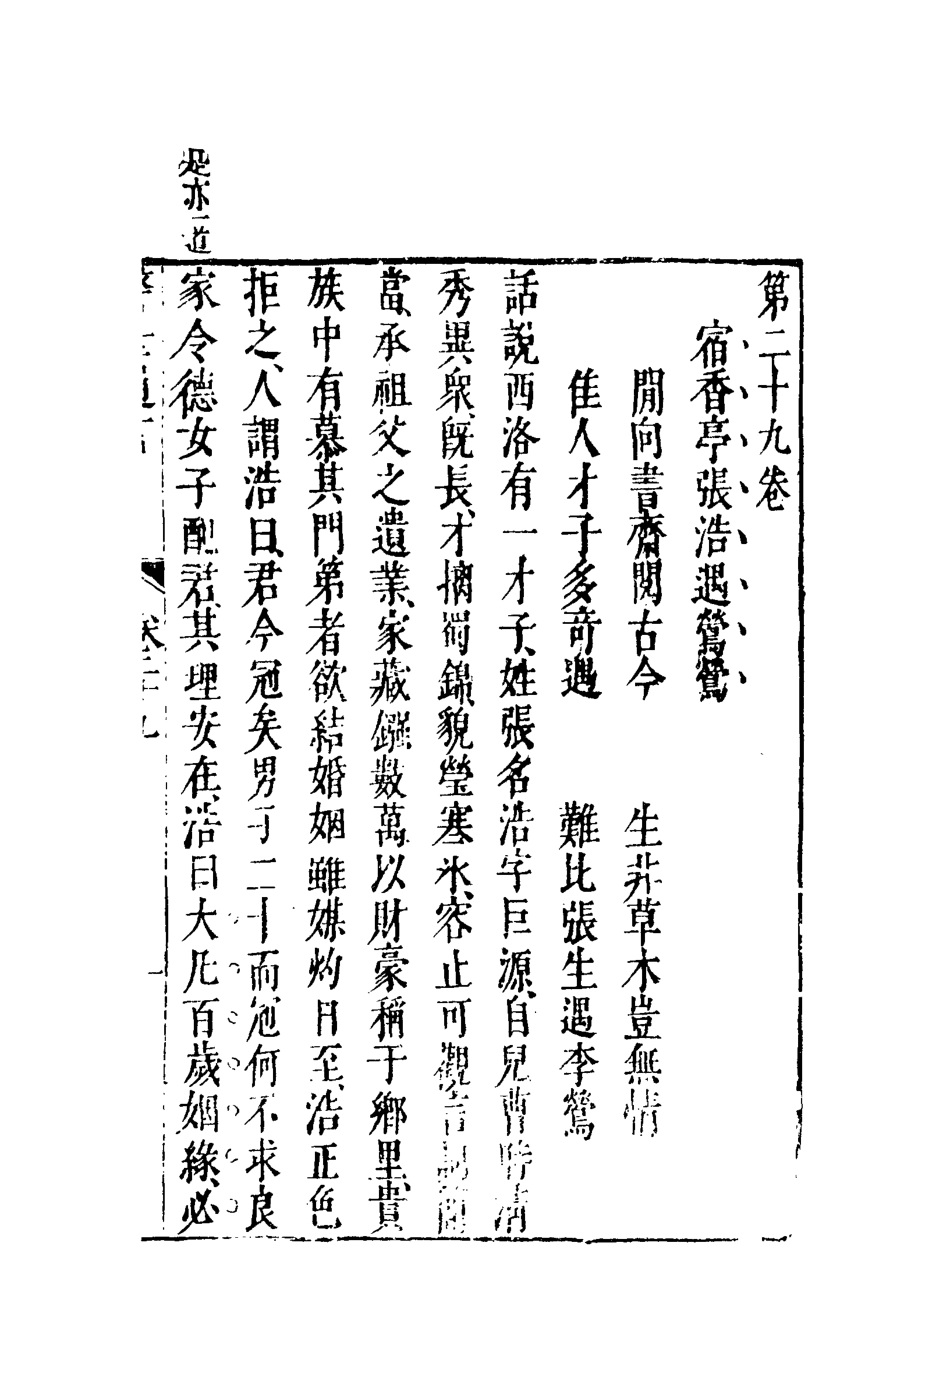 第二十九卷
宿香亭張浩遇鶯鶯
閒向書齋閱古今　生非草木豈無情
佳人才子多奇遇　難比張生遇李鶯
話說西洛有一才子、姓張名浩字巨源、自兒曹時清
秀異衆、既長、才摛蜀錦、貌瑩寒氷、容止可觀、言詞簡
當、承祖父之遺業、家藏鏹數萬、以財豪稱于鄉里、貴
族中有慕其門第者欲結婚姻雖媒妁日至、浩正色
拒之、人謂浩曰、君今冠矣男子二十而冠何不求良
家令德女子配君、其理安在、浩曰大凡百歲姻緣、必
是亦一道
警世通言　卷二十九　一